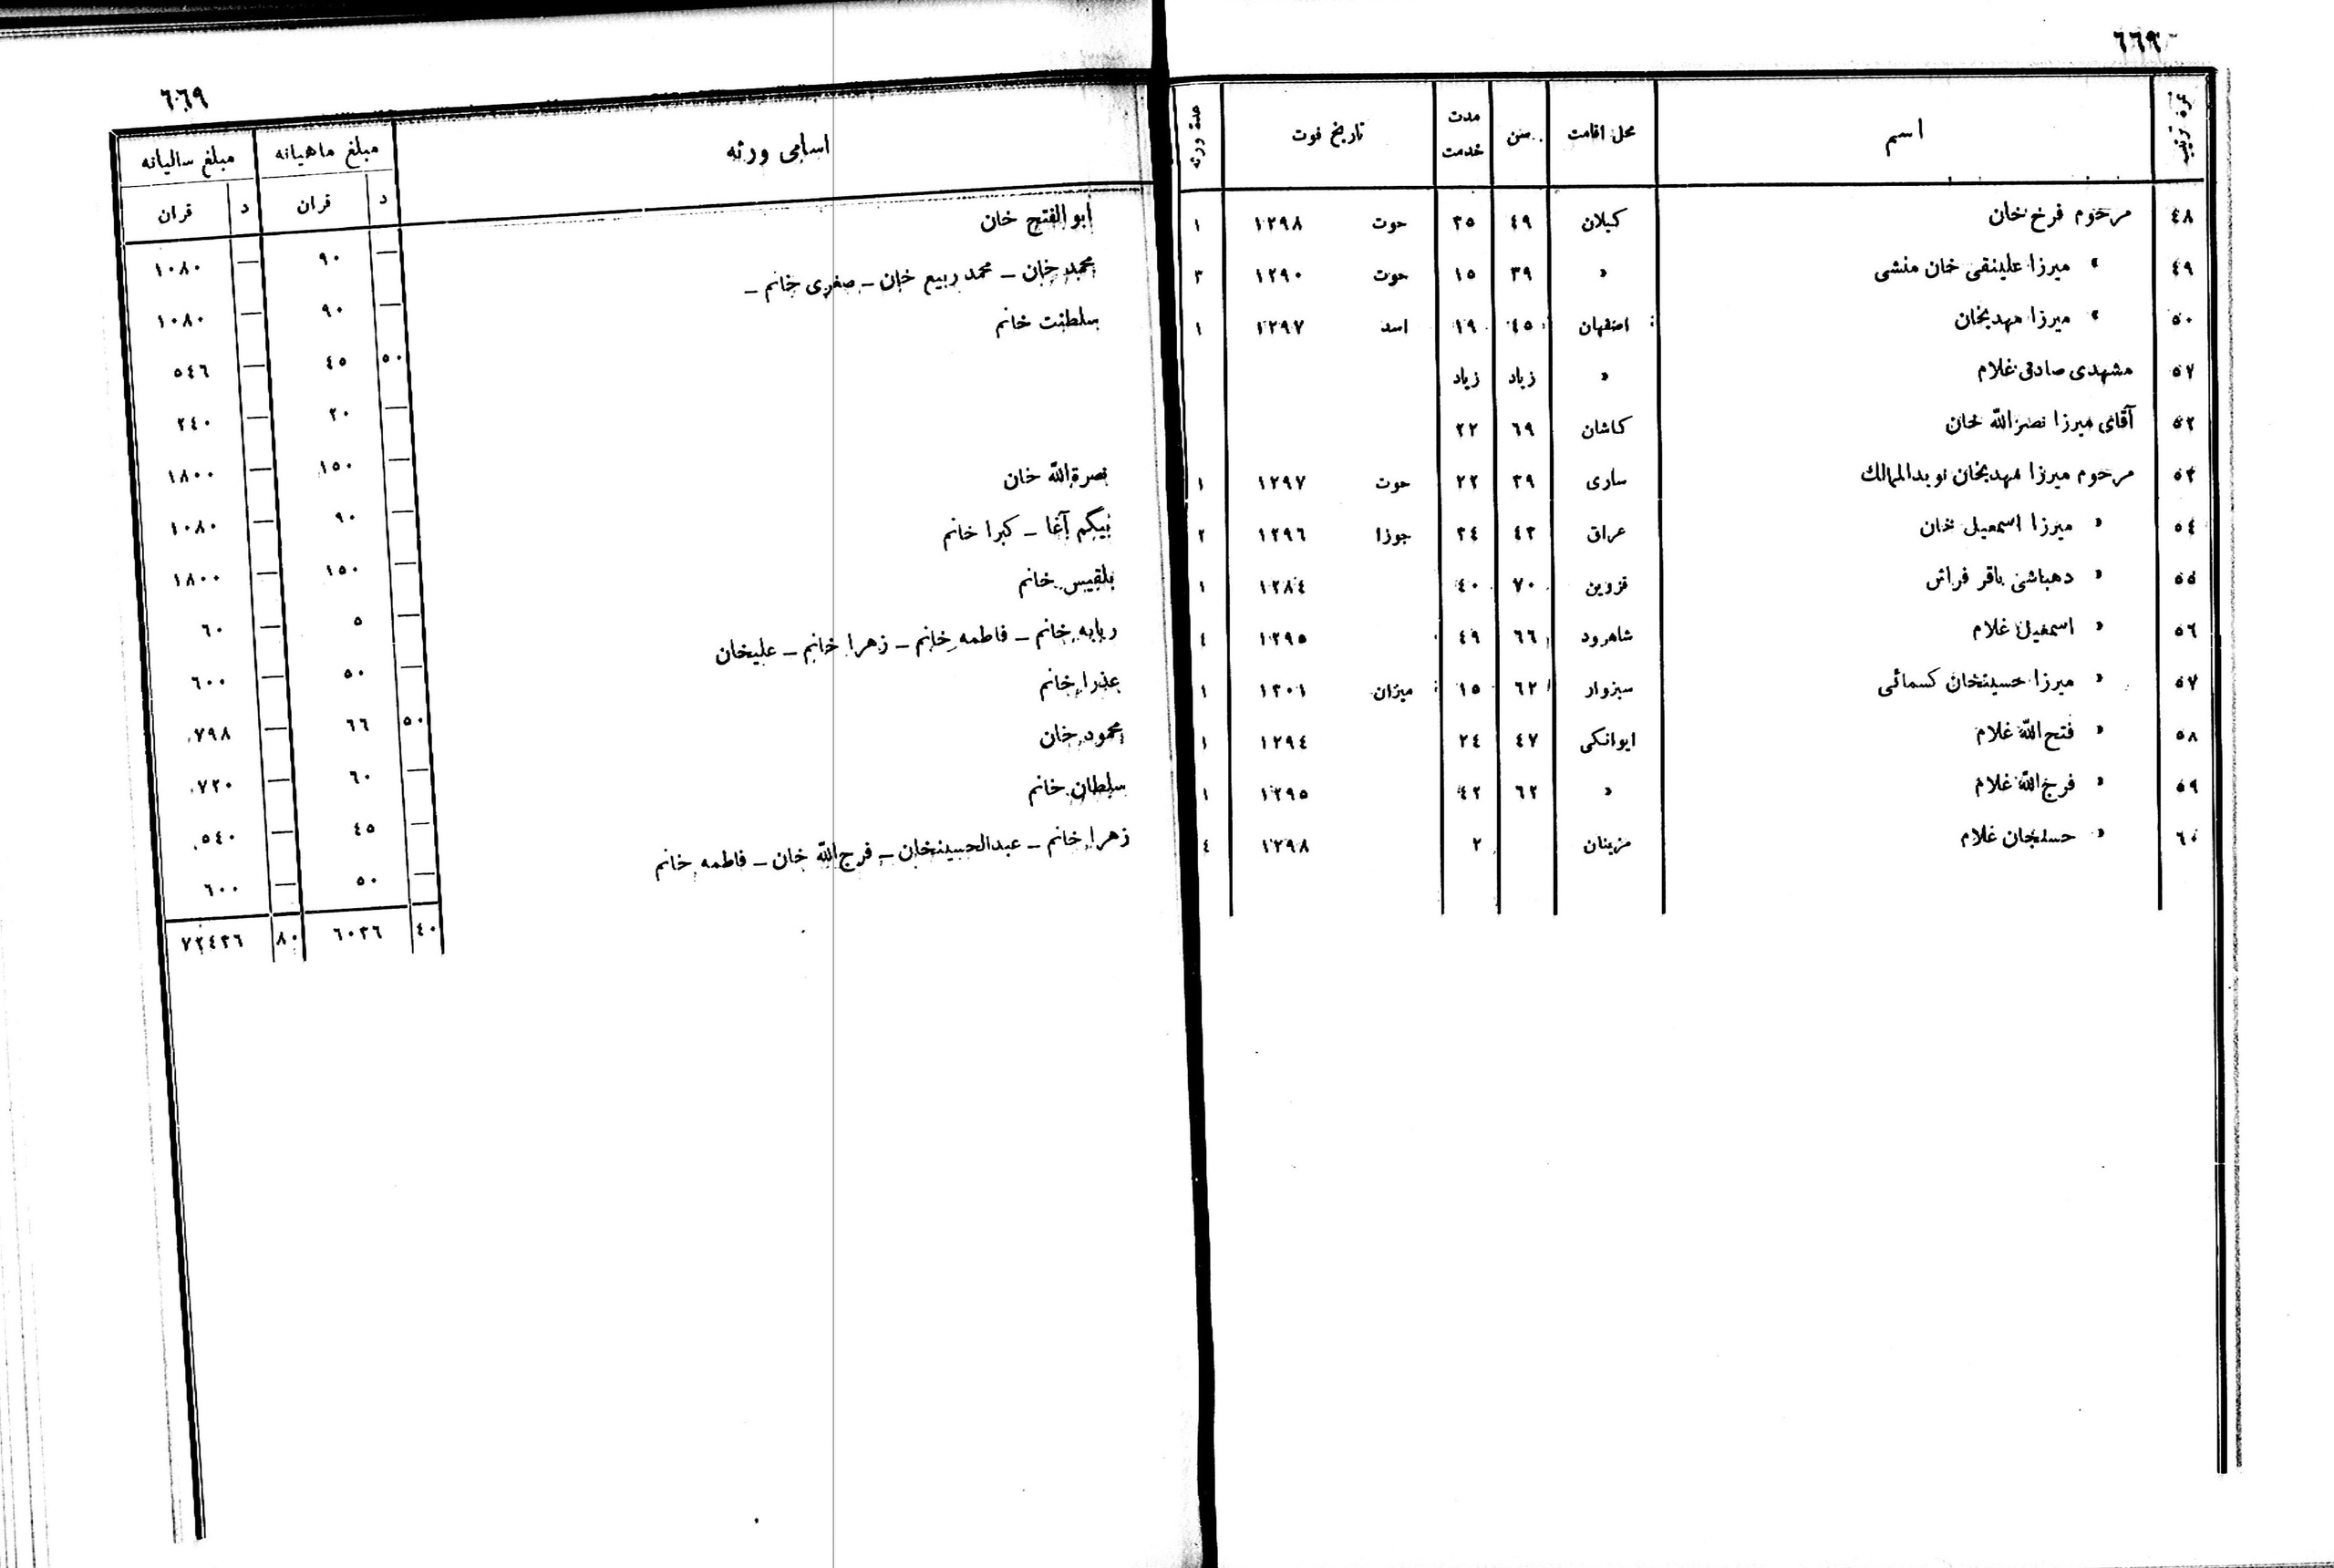 ٦٦٩
نمرۀ ترتیب اسم محل اقامت سن مدت خدمت تاریخ فوت عدۀ ورثه
٤٨ مرحوم فرخ خان کیلان ٤٩ ٣٥ حوت ١٢٩٨ ١
٤٩ » میرزا علینقی خان منشی » ٣٩ ١٥ حوت ١٢٩٠ ٣
٥٠ » میرزا مهدیخان اصفهان ٤٥ ١٩ اسد ١٢٩٧ ١
٥٧ مشهدی صادق غلام » زیاد زیاد
٥٢ آقای میرزا نصرالله خان کاشان ٦٩ ٢٢
٥٣ مرحوم میرزا مهدیخان نویدالممالك ساری ٣٩ ٢٢ حوت ١٢٩٧ ١
٥٤ » میرزا اسمعیل خان عراق ٤٣ ٢٤ جوزا ١٢٩٦ ٢
٥٥ » دهباشی باقر فراش قزوین ٧٠ ٤٠ ١٢٨٤ ١
٥٦ » اسمعیل غلام شاهرود ٦٦ ٤٩ ١٢٩٥ ٤
٥٧ » میرزا حسینخان کسمائی سبزوار ٦٢ ١٥ میزان ١٣٠١ ١
٥٨ » فتح الله غلام ایوانکی ٤٧ ٢٤ ١٢٩٤ ١
٥٩ » فرج الله غلام » ٦٢ ٤٢ ١٢٩٥ ١
٦٠ » حسنجان غلام مزینان ٢ ١٢٩٨ ٤
٦٦٩
اسامی ورثه مبلغ ماهیانه مبلغ سالیانه
د قران د قران
ابوالفتح خان — ٩٠ — ١٠٨٠
محمد خان – محمد ربیع خان – صغری خانم – — ٩٠ — ١٠٨٠
سلطنت خانم ٥٠ ٤٥ — ٥٤٦
— ٢٠ — ٢٤٠
— ١٥٠ — ١٨٠٠
نصرةالله خان — ٩٠ — ١٠٨٠
بیگم آغا – کبرا خانم — ١٥٠ — ١٨٠٠
بلقیس خانم — ٥ — ٦٠
ربابه خانم – فاطمه خانم – زهرا خانم – علیخان — ٥٠ — ٦٠٠
عذرا خانم ٥٠ ٦٦ — ٧٩٨
محمود خان — ٦٠ — ٧٢٠
سلطان خانم — ٤٥ — ٥٤٠
زهرا خانم – عبدالحسینخان – فرج الله خان – فاطمه خانم — ٥٠ — ٦٠٠
٤٠ ٦٠٣٦ ٨٠ ٧٢٤٣٦